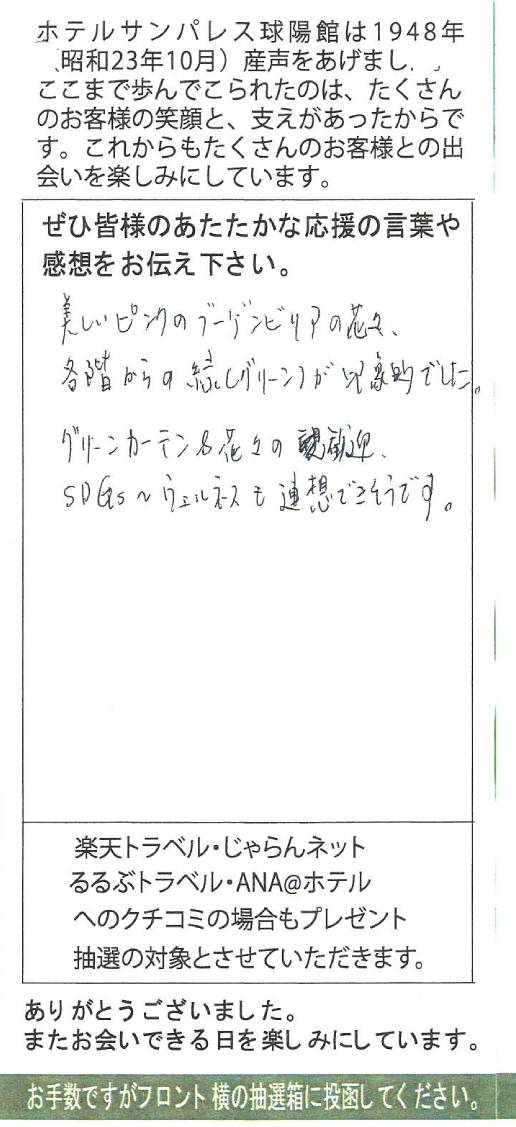 ホテルサンパレス球陽館は1948年
昭和23年10月）産声をあげまし
ここまで歩んでこられたのは、たくさん
のお客様の笑顔と、支えがあったからで
す。これからもたくさんのお客様との出
会いを楽しみにしています。
ぜひ皆様のあたたかな応援の言葉や
感想をお伝え下さい。
美しいピンクのブーゲンビリアの花々、
各階からの緑(グリーン)が印象的でした。
グリーンカーテン&花々の歓迎、
SDGs～ウェルネスも連想できそうです。
楽天トラベル・じゃらんネット
るるぶトラベル・ANA@ホテル
へのクチコミの場合もプレゼント
抽選の対象とさせていただきます。
ありがとうございました。
またお会いできる日を楽しみにしています。
お手数ですがフロント横の抽選箱に投函してください。